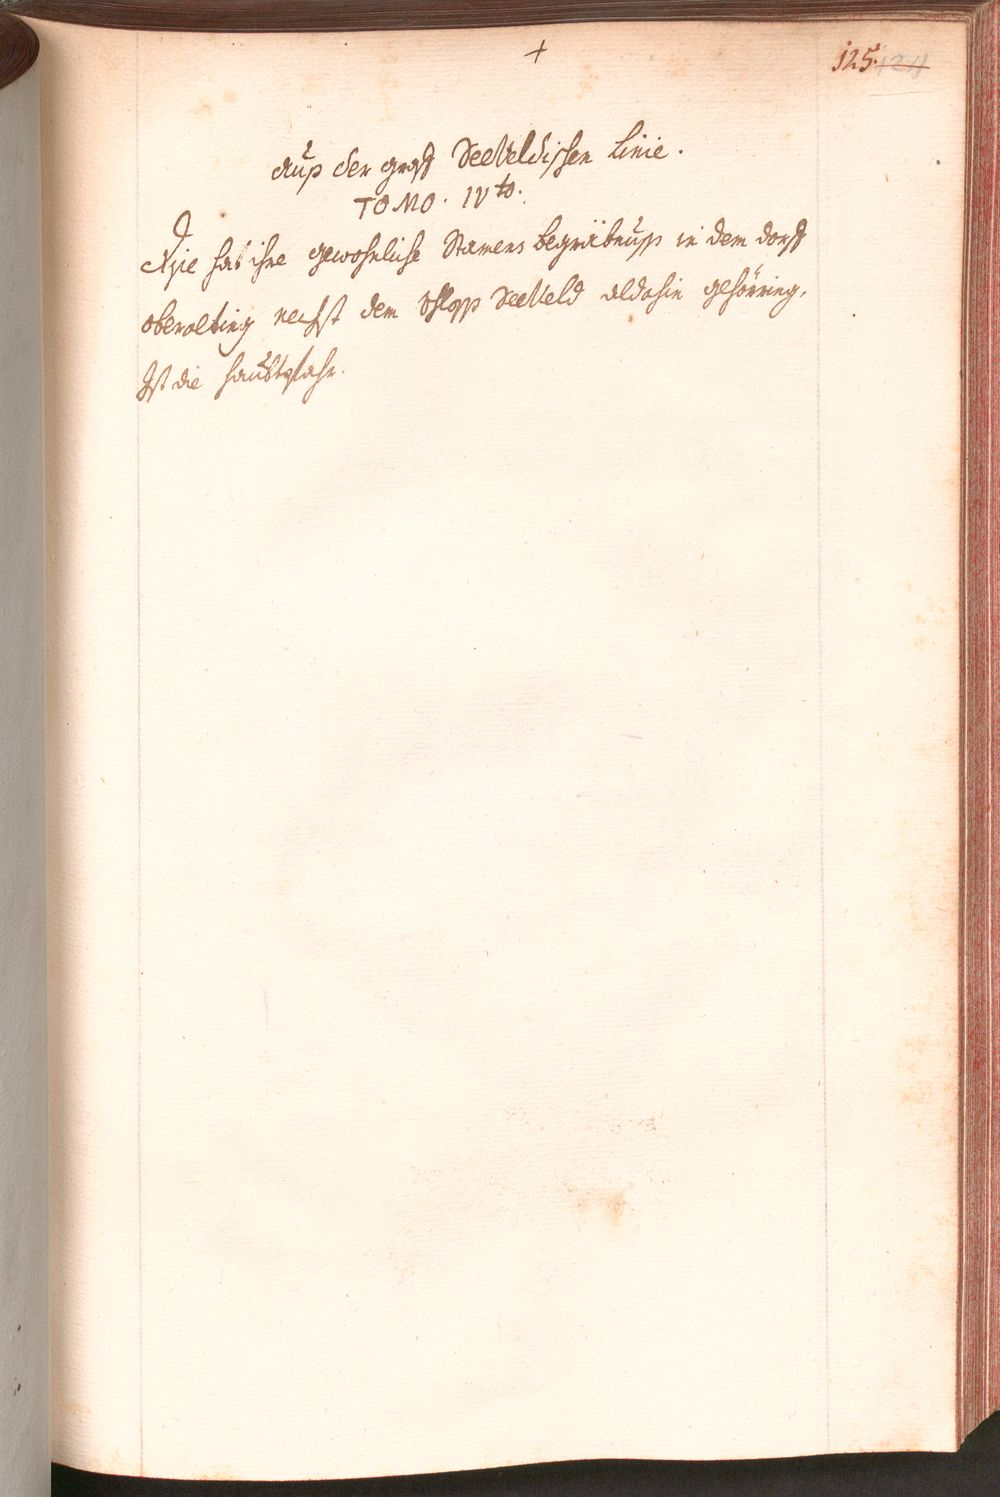 +
125. 124
Auß der graff Seeveldischen Linie.
TOMO. IV to.
Dise hat ihre gewohnliche Stamens begräbnuß in dem dorff
oberalting nechst dem schloss Seeveld aldahin gehörrig,
Ist die